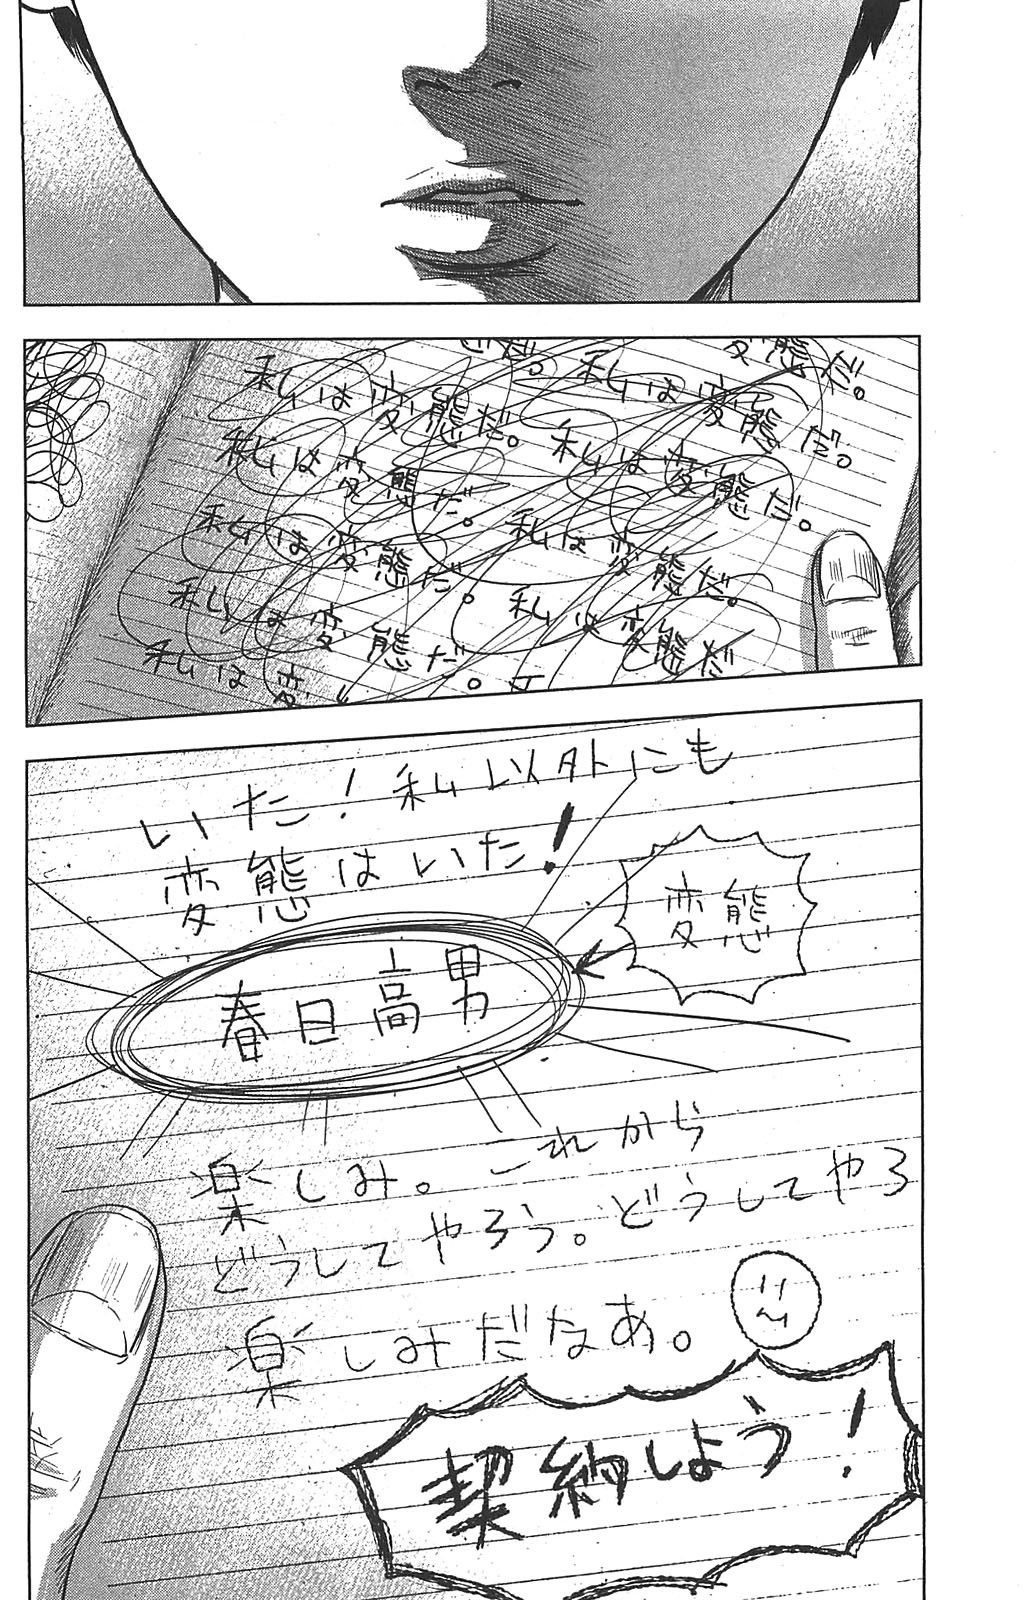 変態だ。
私は変態だ。 私は変態だ。
私は変態だ。 私は変態だ。
私は変態だ。 私は変態だ。
私は変態だ。 私は変態だ
私は変
いた!私以外にも
変態はいた!
変態
春日高男
楽しみ。これから
どうしてやろう。どうしてやろ
楽しみだなあ。
契納しよう!